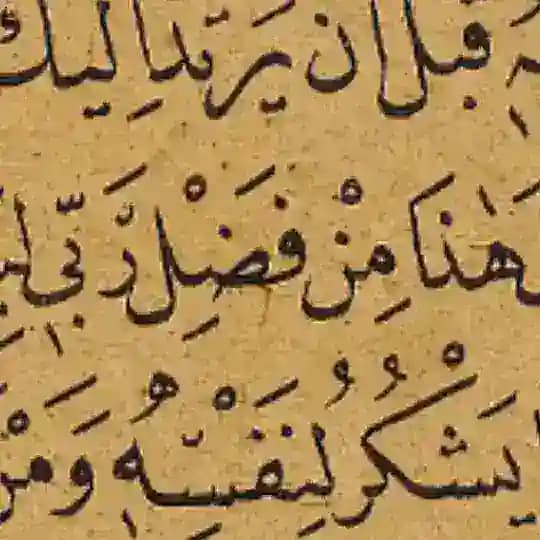 قَبْلَ اَنْ يَرْتَدَّ اِلَيْكَ
هٰذَا مِنْ فَضْلِ رَبِّي
يَشْكُرُ لِنَفْسِهٖ وَمَنْ